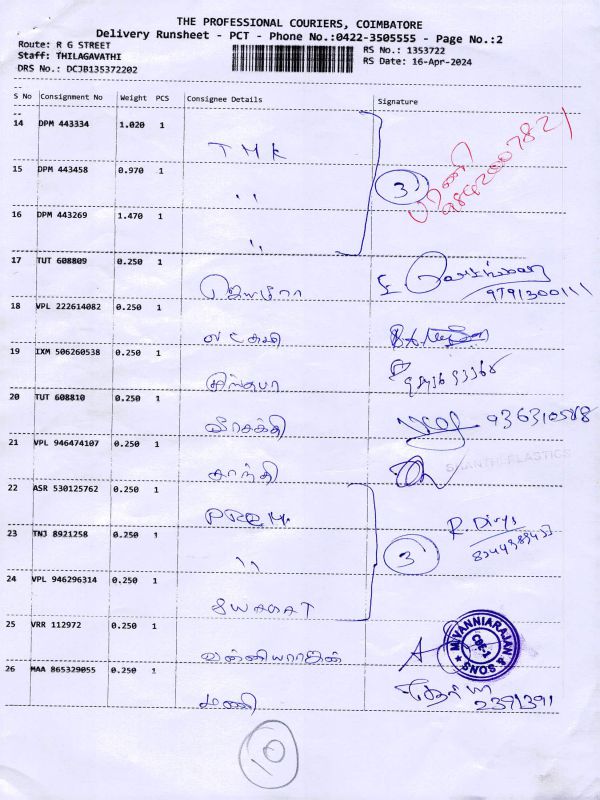 THE PROFESSIONAL COURIERS, COIMBATORE
Delivery Runsheet - PCT - Phone No.:0422-3505555 - Page No.:2
Route: R G STREET
RS No.: 1353722
Staff: THILAGAVATHI
RS Date: 16-Apr-2024
DRS No.: DCJB135372202
S No Consignment No Weight PCS Consignee Details Signature
14 DPM 443334 1.020 1 TMK
15 DPM 443458 0.970 1 ,, 3
9842007821
16 DPM 443269 1.470 1 ,,
17 TUT 608809 0.250 1
9791300111
18 VPL 222614082 0.250 1
19 IXM 506260538 0.250 1
20 TUT 608810 0.250 1 வீரசக்தி
21 VPL 946474107 0.250 1 காந்தி
SHANTHI PLASTICS
22 ASR 530125762 0.250 1 PREM.
R. Divya
23 TNJ 8921258 0.250 1 ,, 3
24 VPL 946296314 0.250 1
25 VRR 112972 0.250 1 வன்னியராஜன்
M.VANNIARAJAN & SONS
CBE-1
26 MAA 865329055 0.250 1 மணி
2391391
10